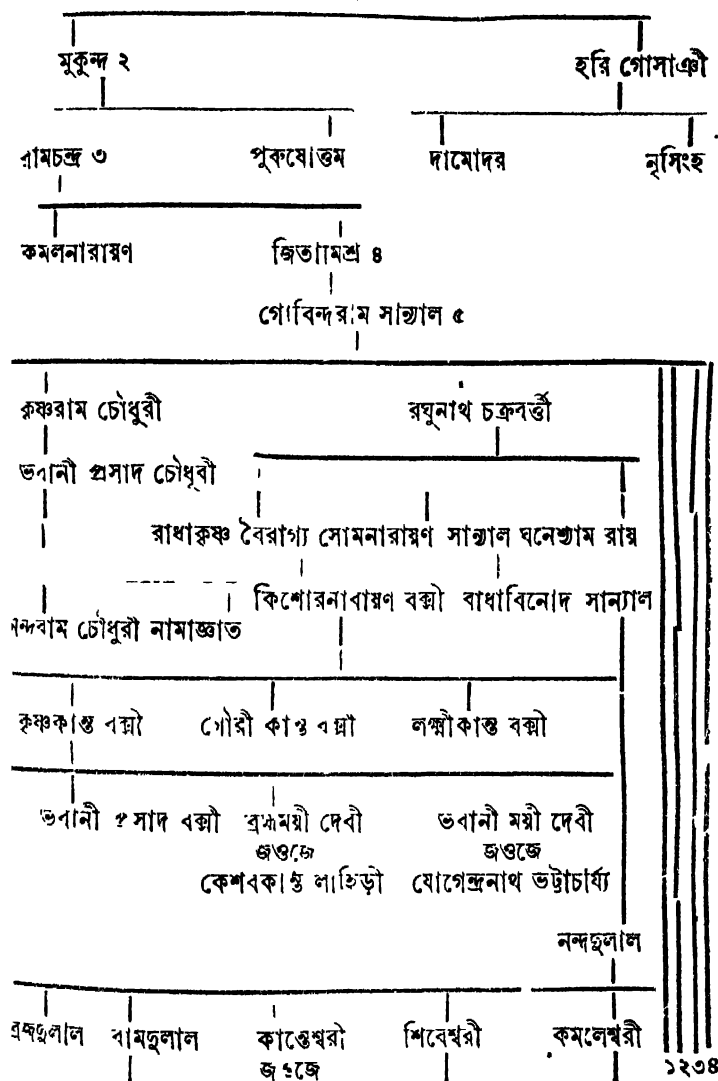 মুকুন্দ ২ হরি গোসাঞী
রামচন্দ্র ৩ পুরুষোত্তম দামোদর নৃসিংহ
কমলনারায়ণ জিতামিশ্র ৪
গোবিন্দরাম সান্যাল ৫
কৃষ্ণরাম চৌধুরী রঘুনাথ চক্রবর্ত্তী
ভবানী প্রসাদ চৌধুরী
রাধাকৃষ্ণ বৈরাগ্য সোমনারায়ণ সান্যাল ঘনেশ্যাম রায়
কিশোরনারায়ণ বক্সী রাধাবিনোদ সান্যাল
নন্দরাম চৌধুরী নামাজ্ঞাত
কৃষ্ণকান্ত বক্সী গৌরী কান্ত বক্সী লক্ষ্মীকান্ত বক্সী
ভবানী প্রসাদ বক্সী ব্রহ্মময়ী দেবী ভবানী ময়ী দেবী
জওজে জওজে
কেশবকান্ত লাহিড়ী যোগেন্দ্রনাথ ভট্টাচার্য্য
নন্দদুলাল
ব্রজদুলাল রামদুলাল কান্তেশ্বরী শিবেশ্বরী কমলেশ্বরী
জওজে ১২৩৪